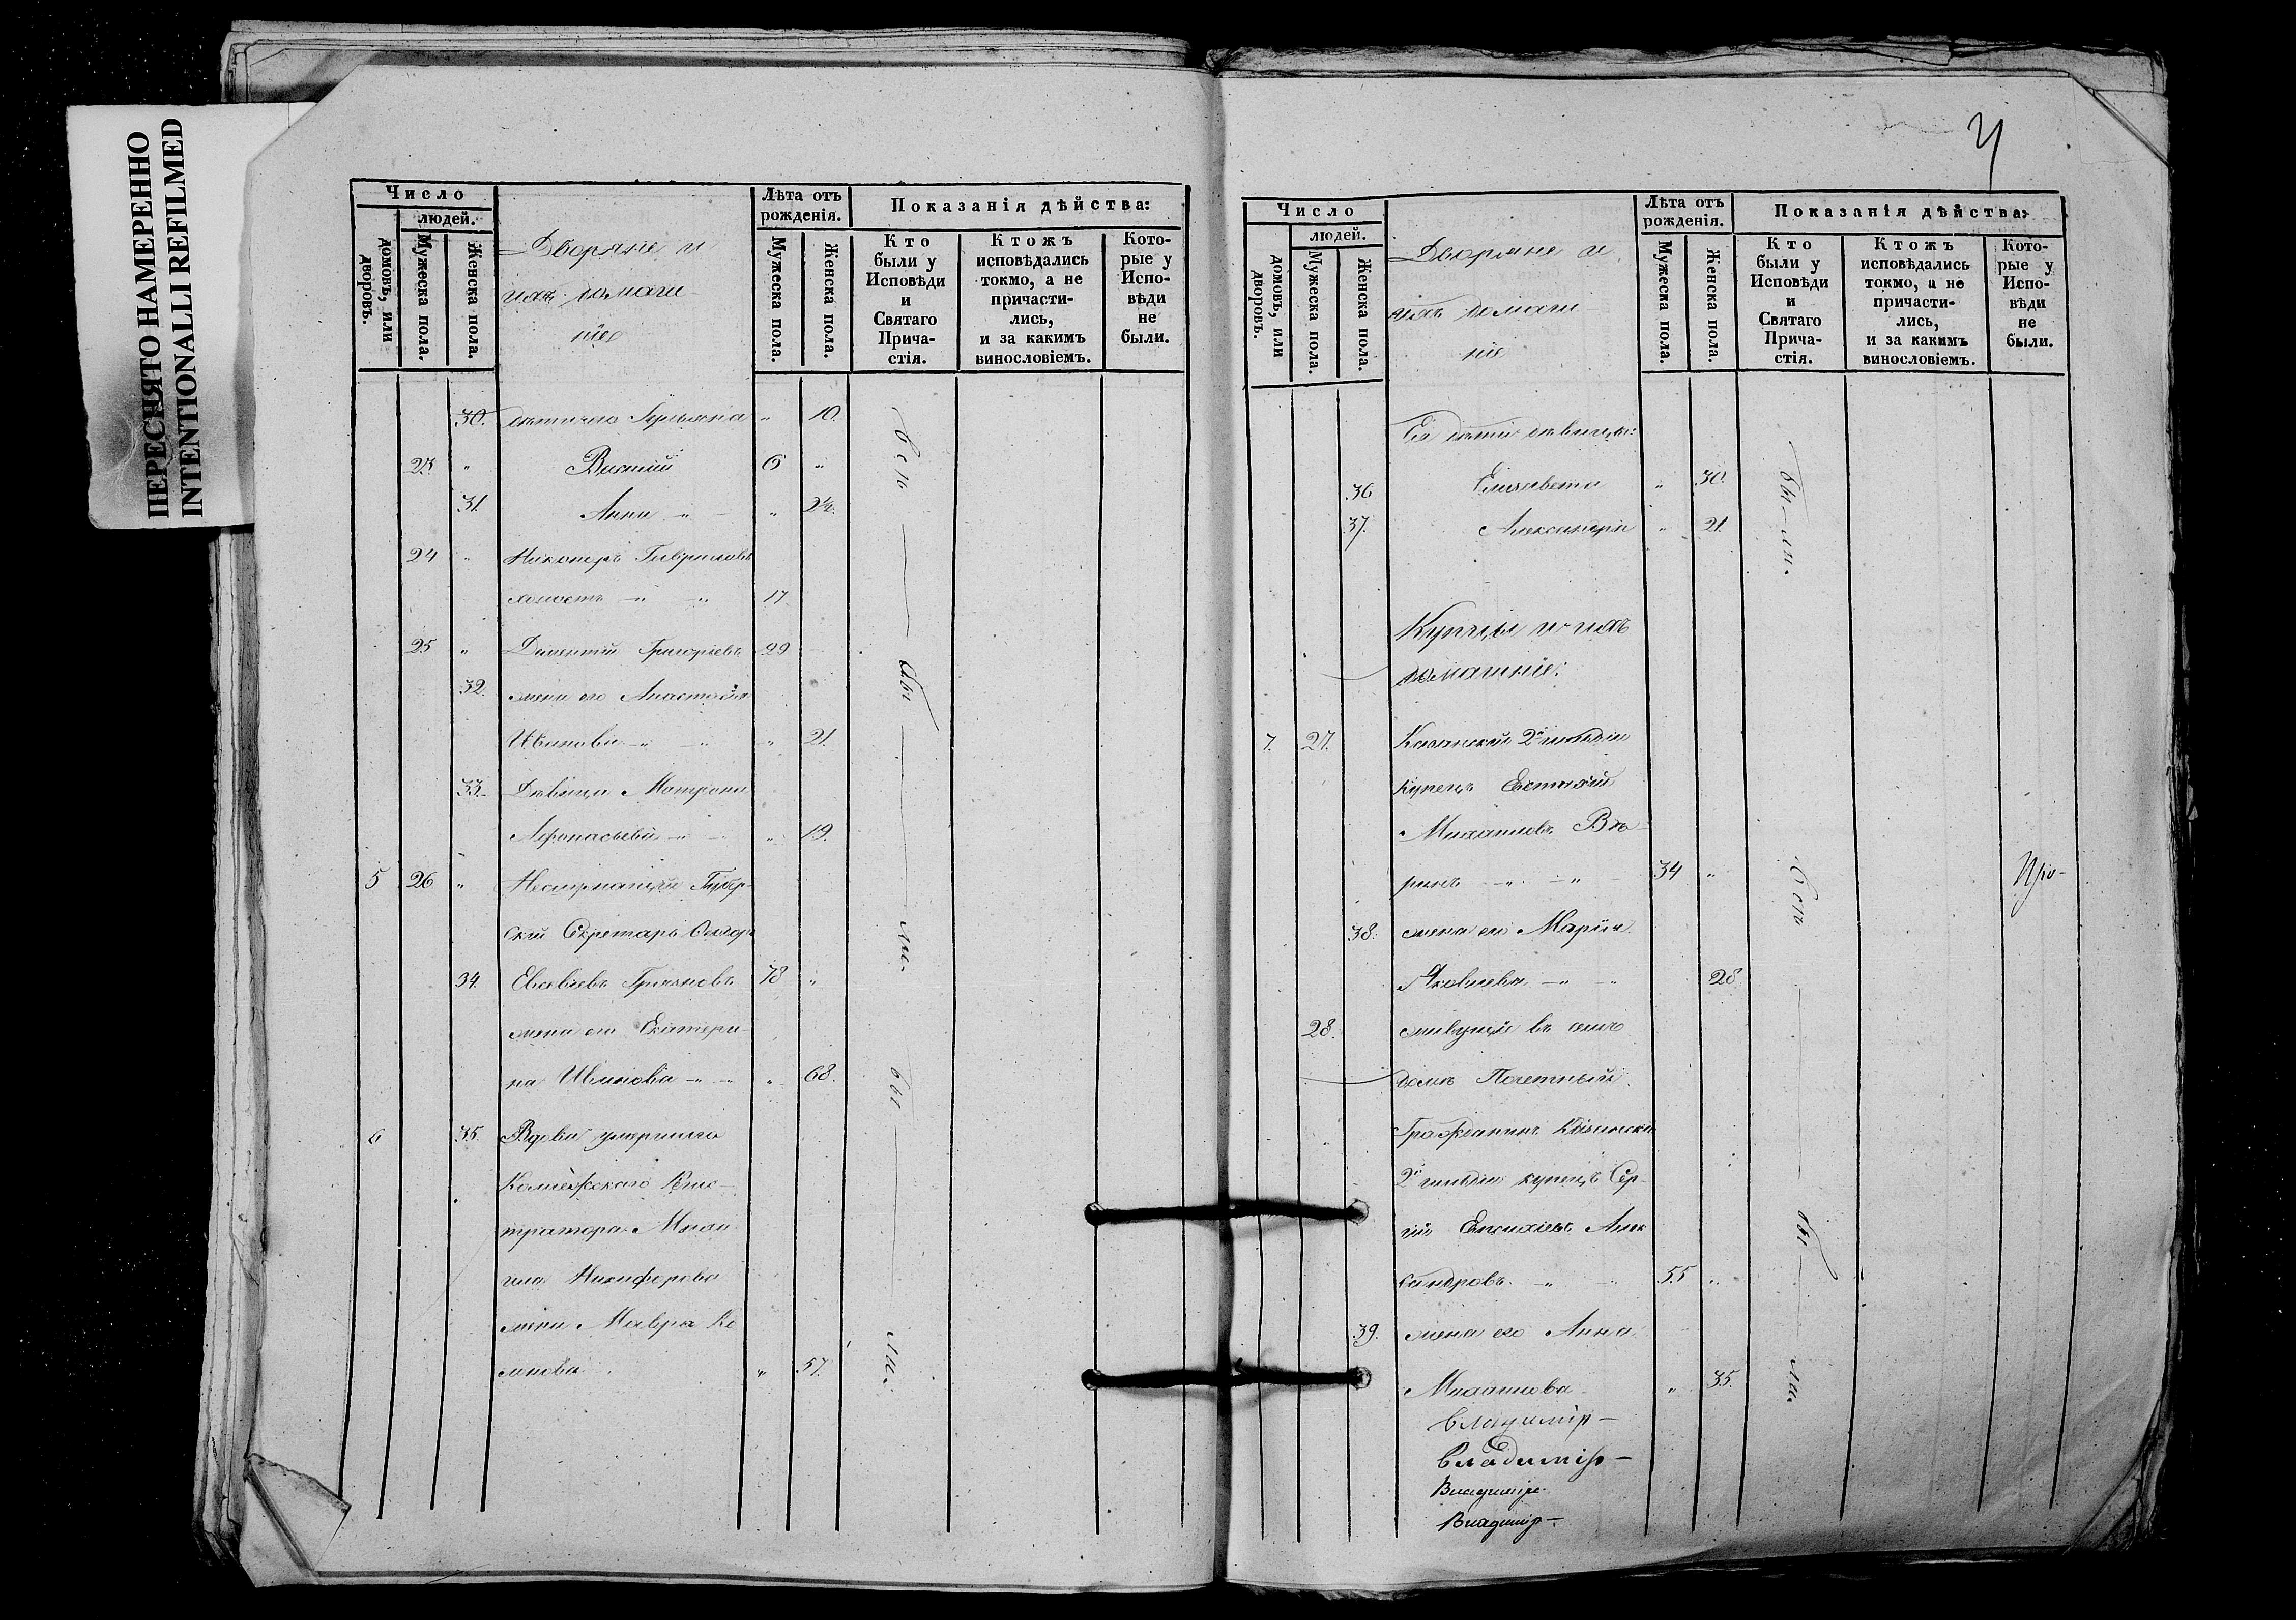 ПЕРЕСНЯТО НАМЕРЕННО
INTENTIONALLI REFILMED
Число
людей.
домовъ, или дворовъ.
Мужеска пола.
Женска пола.
Дворяне и
ихъ домаш-
ніе
Лѣта отъ рожденія.
Мужеска пола.
Женска пола.
Показанія дѣйства:
Кто были у Исповѣди и Святаго Прича-стія.
Ктожъ исповѣдались токмо, а не причасти-лись, и за какимъ винословіемъ.
Кото-рые у Испо-вѣди не были.
30. " 10.
23. " Василій 6 "
31. Анна " " 2½.
24 " Никаноръ Гавриловъ
холостъ " " 17
25 " Григорьевъ 29
32. жена его Анастасія
Иванова " " " 21.
33. Дѣвица Матрона
Афонасьева " " 19.
5 26 " Губер-
скій Секретарь
34. Евсевіевъ 78 "
жена его Екатери-
на Иванова " " " 68.
6 35. Вдова умершаго
Коллежскаго Реги-
стратора Миха
ила Никифорова
жена Мавра
" 57.
всѣ
бы
ли.
бы
ли.
4
Число
людей.
домовъ, или дворовъ.
Мужеска пола.
Женска пола.
Дворяне и
ихъ домаш-
ніе
Лѣта отъ рожденія.
Мужеска пола.
Женска пола.
Показанія дѣйства:
Кто были у Исповѣди и Святаго Прича-стія.
Ктожъ исповѣдались токмо, а не причасти-лись, и за какимъ винословіемъ.
Кото-рые у Испо-вѣди не были.
Ея дѣти дѣвицы:
36 Елизавета " 30.
37. Александра " 21.
бы-ли.
Купцы и ихъ
домашніе:
7. 27. Казанской 2й гильдіи
купецъ Евстафій
Михайловъ
" " 34 "
38. жена его Марія
Яковлева " " 28
28. живущій въ семъ
домѣ Почетный
Гражданинъ Казанскій
2й гильдіи купецъ Сер-
гій Алек
сандровъ " " 55 "
39. жена его Анна
Михайлова " 35.
всѣ
бы
ли.
Владимір-
Владимір-
Владимір-
Владимір-